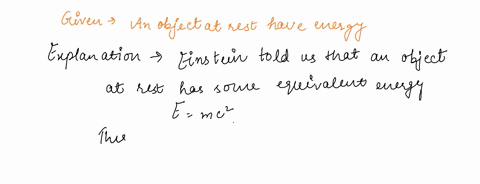 Given → An object at rest have energy
Explanation → Einstein told us that an object
at rest has some equivalent energy
E = mc².
Thus